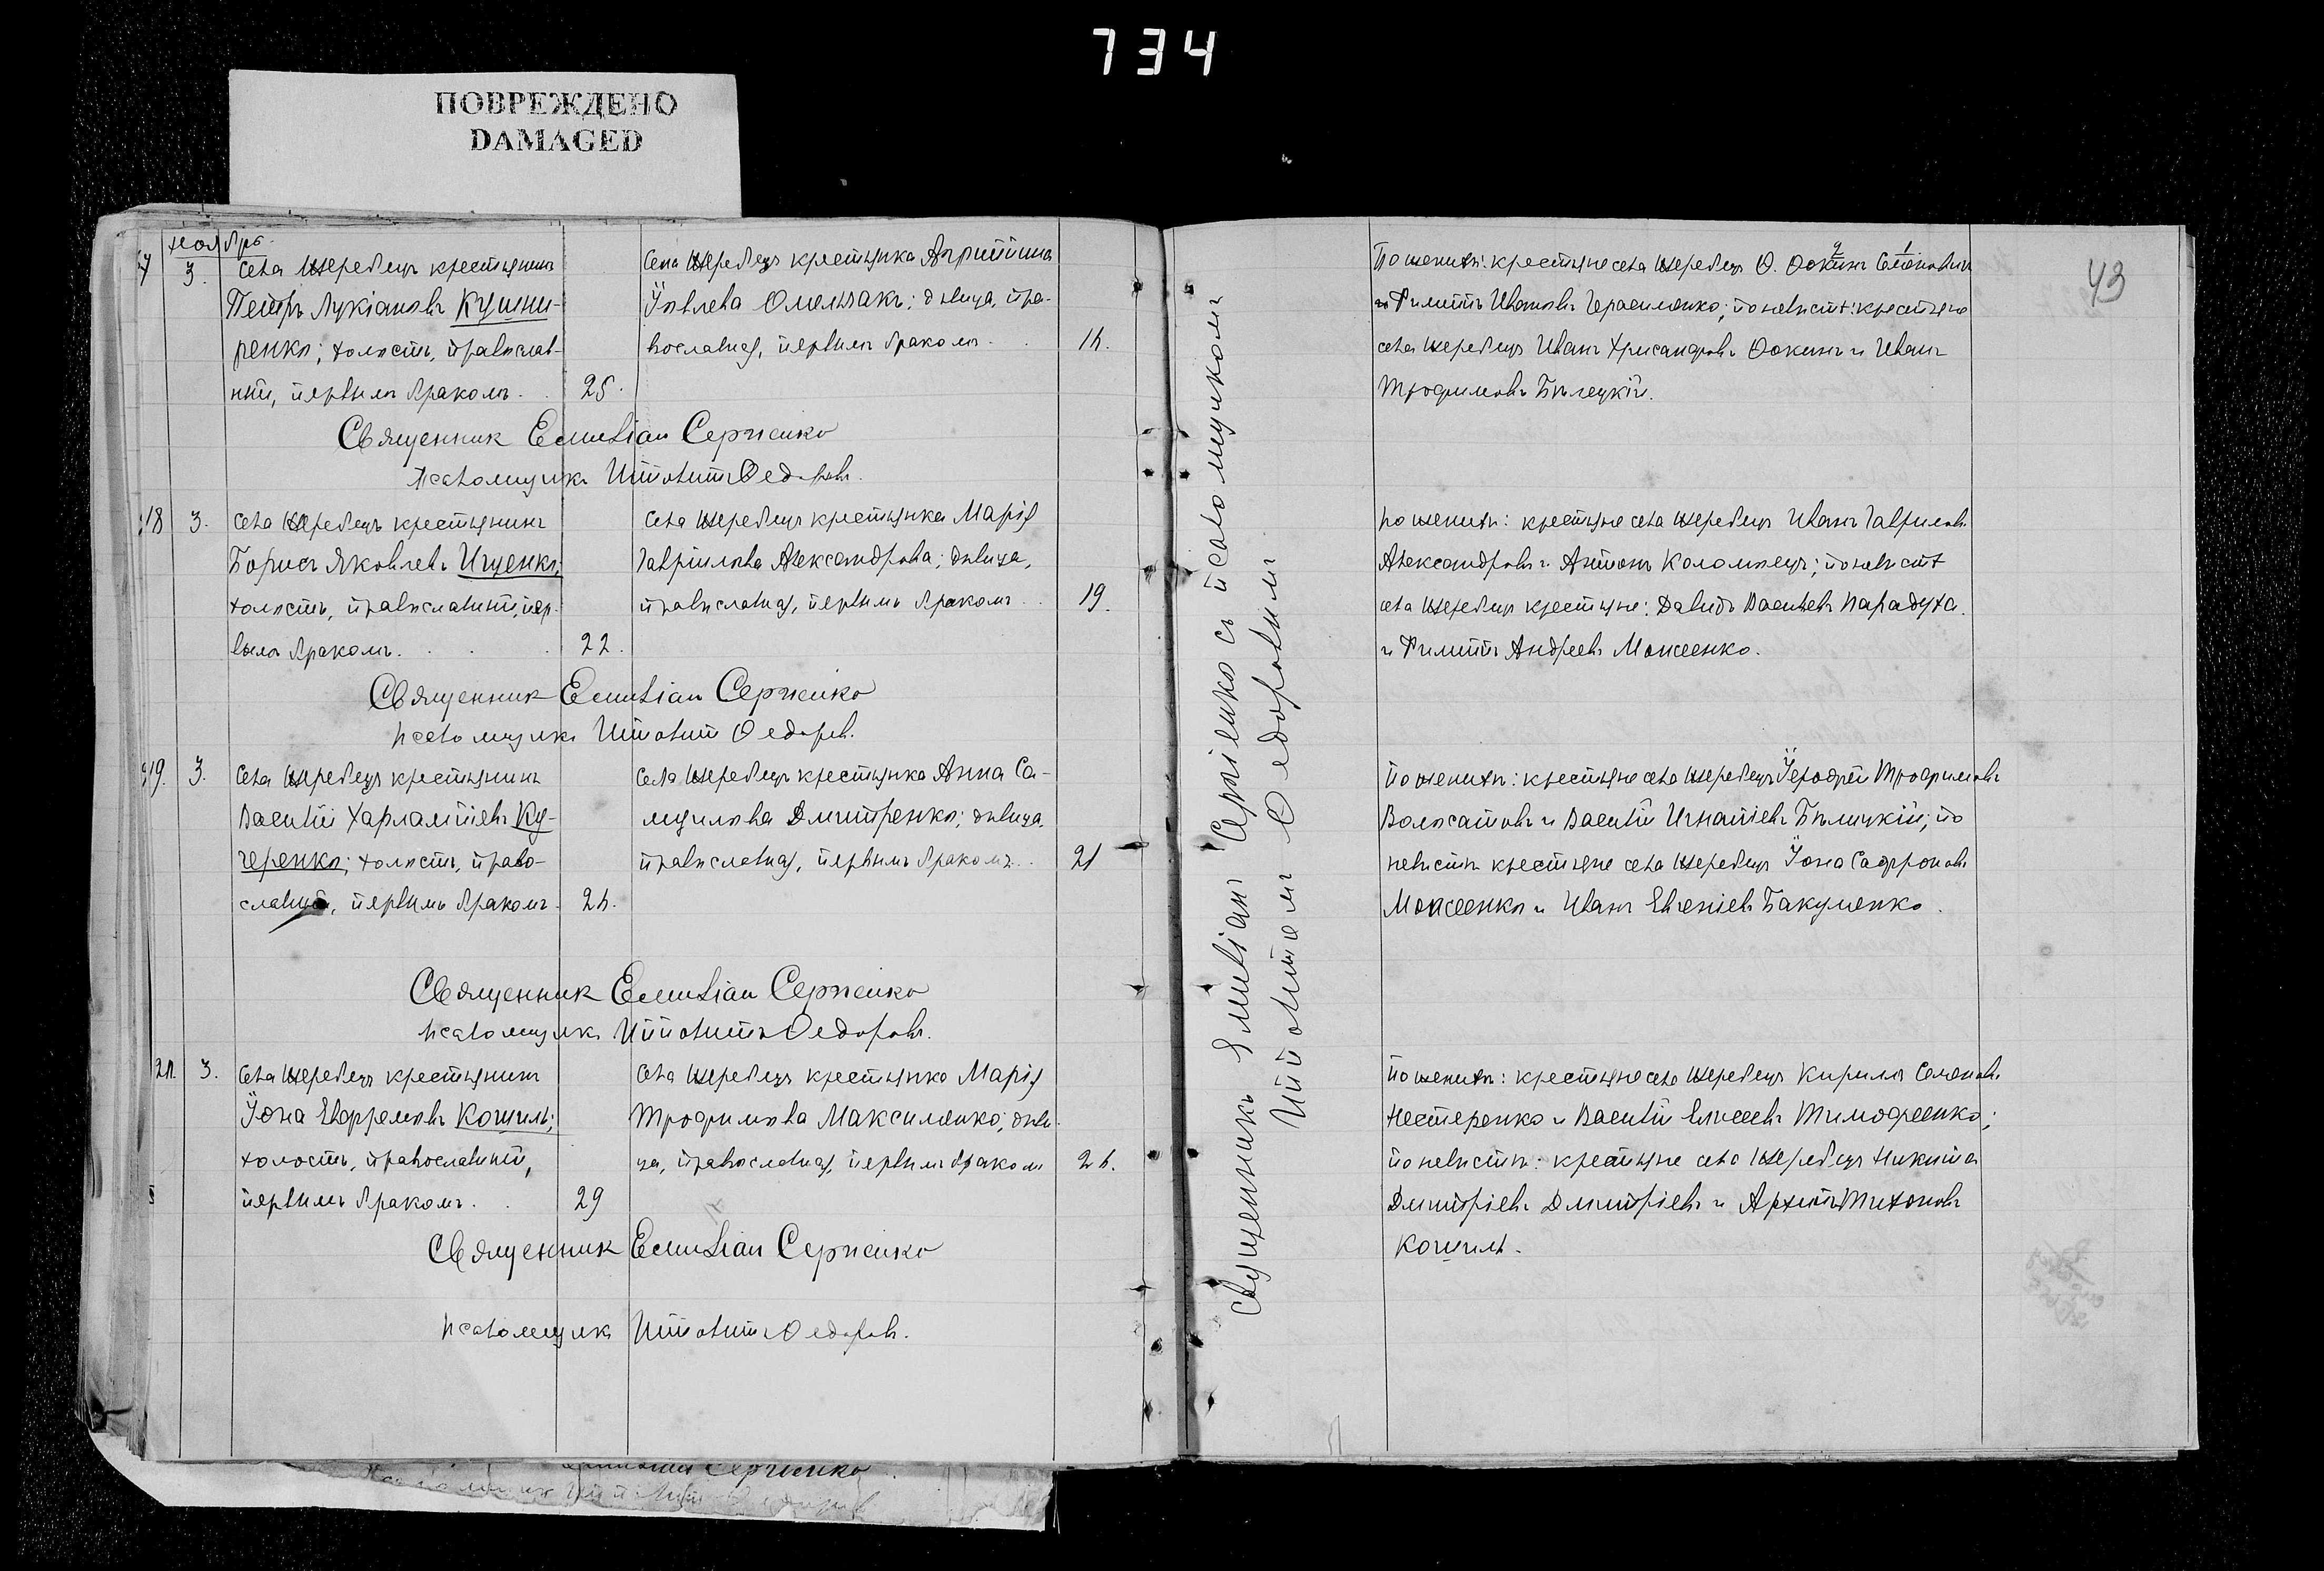 734
ПОВРЕЖДЕНО
DAMAGED
Ноябрь
17
3.
Села Жеребецъ крестьянинъ
Петръ Лукіановъ Кушни-
ренко; холостъ, православ-
ный, первымъ бракомъ.
25.
Села Жеребецъ крестьянка Агриппина
Іовлева Омельчакъ; дѣвица, пра-
вославная, первымъ бракомъ.
Священникъ Емиліанъ Сергіенко
Псаломщикъ Ипполитъ Ѳедоровъ.
18
3.
Села Жеребецъ крестьянинъ
Борисъ Яковлевъ Ищенко;
холостъ, православный, пер-
вымъ бракомъ.
22.
Села Жеребецъ крестьянка Марія
Гавріилова Александрова; дѣвица,
православная, первымъ бракомъ.
19.
Священникъ Емиліанъ Сергіенко
Псаломщикъ Ипполитъ Ѳедоровъ.
19.
3.
Села Жеребецъ крестьянинъ
Василій Харлампіевъ Ку-
черенко; холостъ, право-
славный, первымъ бракомъ
Села Жеребецъ крестьянка Анна Са-
муилова Дмитренко; дѣвица,
православная, первымъ бракомъ.
21
Священникъ Емиліанъ Сергіенко
Псаломщикъ Ипполитъ Ѳедоровъ.
20.
3.
Села Жеребецъ крестьянинъ
Іона Евфремовъ Кошиль;
холостъ, православный,
первымъ бракомъ.
29
Села Жеребецъ крестьянка Марія
Трофимова Максименко; дѣви-
ца, православная, первымъ бракомъ
Священникъ Емиліанъ Сергіенко
Псаломщикъ Ипполитъ Ѳедоровъ.
Сергіенко
Священникъ Емиліанъ Сергіенко съ псаломщикомъ
Ипполитомъ Ѳедоровымъ
43
По женихѣ: крестьяне села Жеребецъ Ѳ. Ѳокинъ Семоновичъ
и Филиппъ Ивановъ Герасименко; по невѣстѣ: крестьяне
села Жеребецъ Иванъ Хрисанфовъ Ѳокинъ и Иванъ
Трофимовъ Бѣлецкій.
По женихѣ: крестьяне села Жеребецъ Иванъ Гавриловъ
Александровъ и Антонъ Коломіецъ; по невѣстѣ
села Жеребецъ крестьяне: Давидъ Васильевъ Парадуха
и Филиппъ Андреевъ Моисеенко.
По женихѣ: крестьяне села Жеребецъ Іерофей Трофимовъ
Волосатовъ и Василій Игнатіевъ Бѣлицкій; по
невѣстѣ крестьяне села Жеребецъ Іона Сафроновъ
Моисеенко и Иванъ Евгеніевъ Бакуменко.
По женихѣ: крестьяне села Жеребецъ Кириллъ Семеновъ
Нестеренко и Василій Елисеевъ Тимофеенко;
по невѣстѣ: крестьяне села Жеребецъ Никита
Димитріевъ Димитріевъ и Архипъ Тихоновъ
Кошиль.